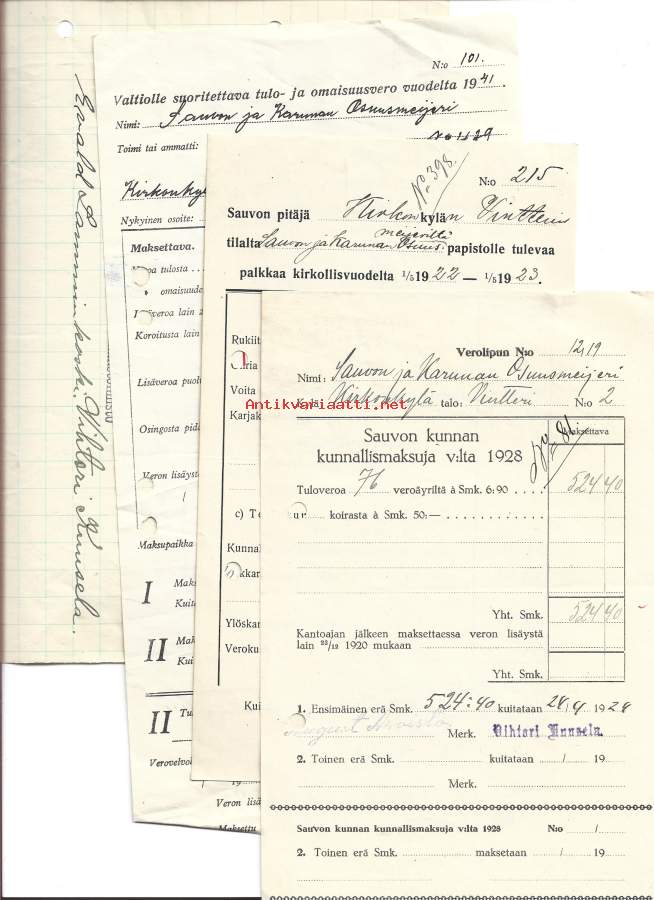 Evald Lamminkoski. Vihtori Kuusela.
N:o 101.
Valtiolle suoritettava tulo- ja omaisuusvero vuodelta 1941.
Nimi: Sauvon ja Karunan Osuusmeijeri
Toimi tai ammatti:
Kirkonky
Nykyinen osoite:
Maksettava.
oa tulosta
" omaisuude
veroa lain 2
Koroitusta lain
Lisäveroa puol
Osingosta pid
Veron lisäyst
/
Maksupaikka
I Mak
Kuita
II Mak
Kui
II Tu
Verovelvol
/ 19
Veron lisä
Maksettu
N:o 398.
N:o 215
Sauvon pitäjä Kirkonkylän Vintterin
meijeriltä
tilalta Sauvon ja Karunan Osuus- papistolle tulevaa
palkkaa kirkollisvuodelta 1/5 1922 — 1/5 1923.
Rukiit
Voita
Karjak
c) T
Kunnal
kkar
Ylöskan
Veroku
Kui
Verolipun N:o 1219
Nimi: Sauvon ja Karunan Osuusmeijeri
Kylä: Kirkonkylä talo: Vintteri N:o 2
Antikvariaatti.net
Sauvon kunnan
kunnallismaksuja v:lta 1928
Maksettava
Tuloveroa 76 veroäyriltä à Smk. 6:90 524 40
koirasta à Smk. 50:—
Yht. Smk. 524 40
Kantoajan jälkeen maksettaessa veron lisäystä
lain 22/12 1920 mukaan
Yht. Smk.
1. Ensimäinen erä Smk. 524:40 kuitataan 28/4 1928
August
Merk. Vihtori Kuusela.
2. Toinen erä Smk. kuitataan / 19
Merk.
Sauvon kunnan kunnallismaksuja v:lta 1928 N:o /
2. Toinen erä Smk. maksetaan / 19